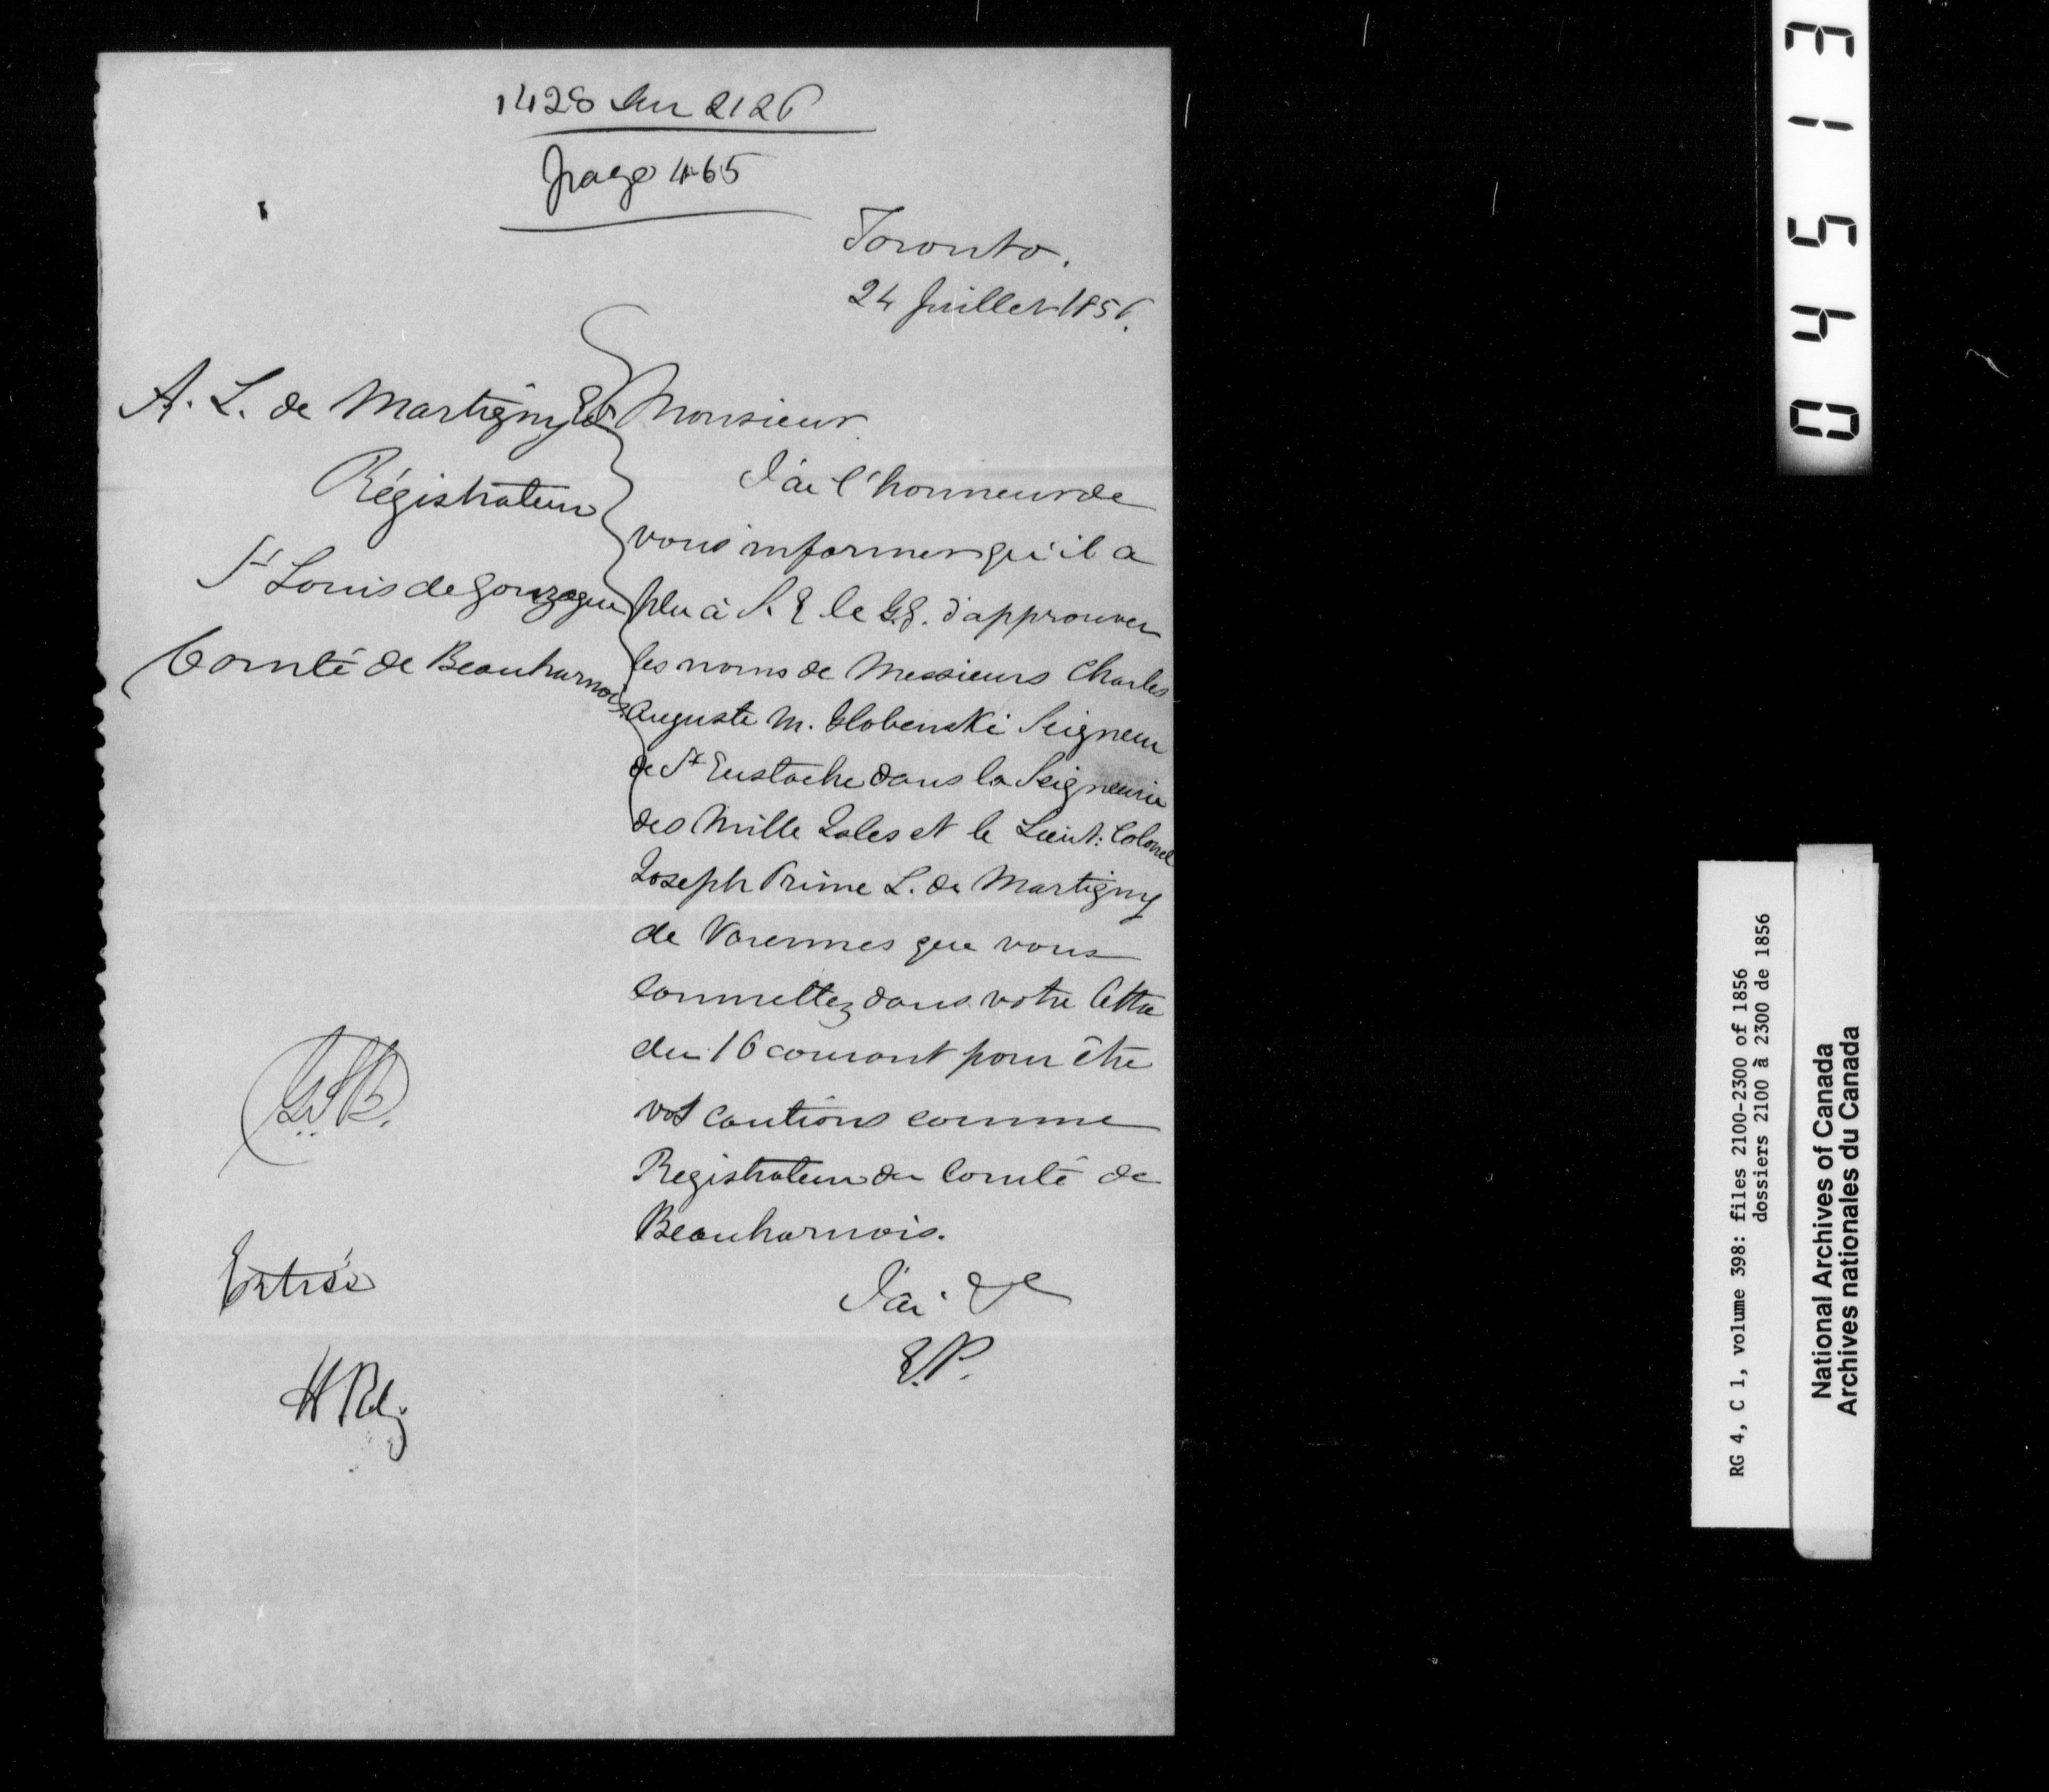 1428 sur 2126
page 465
Toronto.
24 Juillet 1856.
A. L. de Martigny Ecr
Régistrateur
St Louis de Gonzague
Comté de Beauharnois
Monsieur.
J'ai l'honneur de
vous informer qu'il a
plu à S. E le G.G. d'approuver
les noms de Messieurs Charles
Auguste M. Globenski Seigneur
de St Eustache dans la Seigneurie
des Mille Isles et le Lieut: Colonel
Joseph Prime L. de Martigny
de Varennes que vous
soumettez dans votre lettre
du 16 courant pour être
vos cautions comme
Registrateur du Comté de
Beauharnois.
J'ai &c
E.P.
Entrée
04513
RG 4, C 1, volume 398: files 2100-2300 of 1856
dossiers 2100 à 2300 de 1856
National Archives of Canada
Archives nationales du Canada